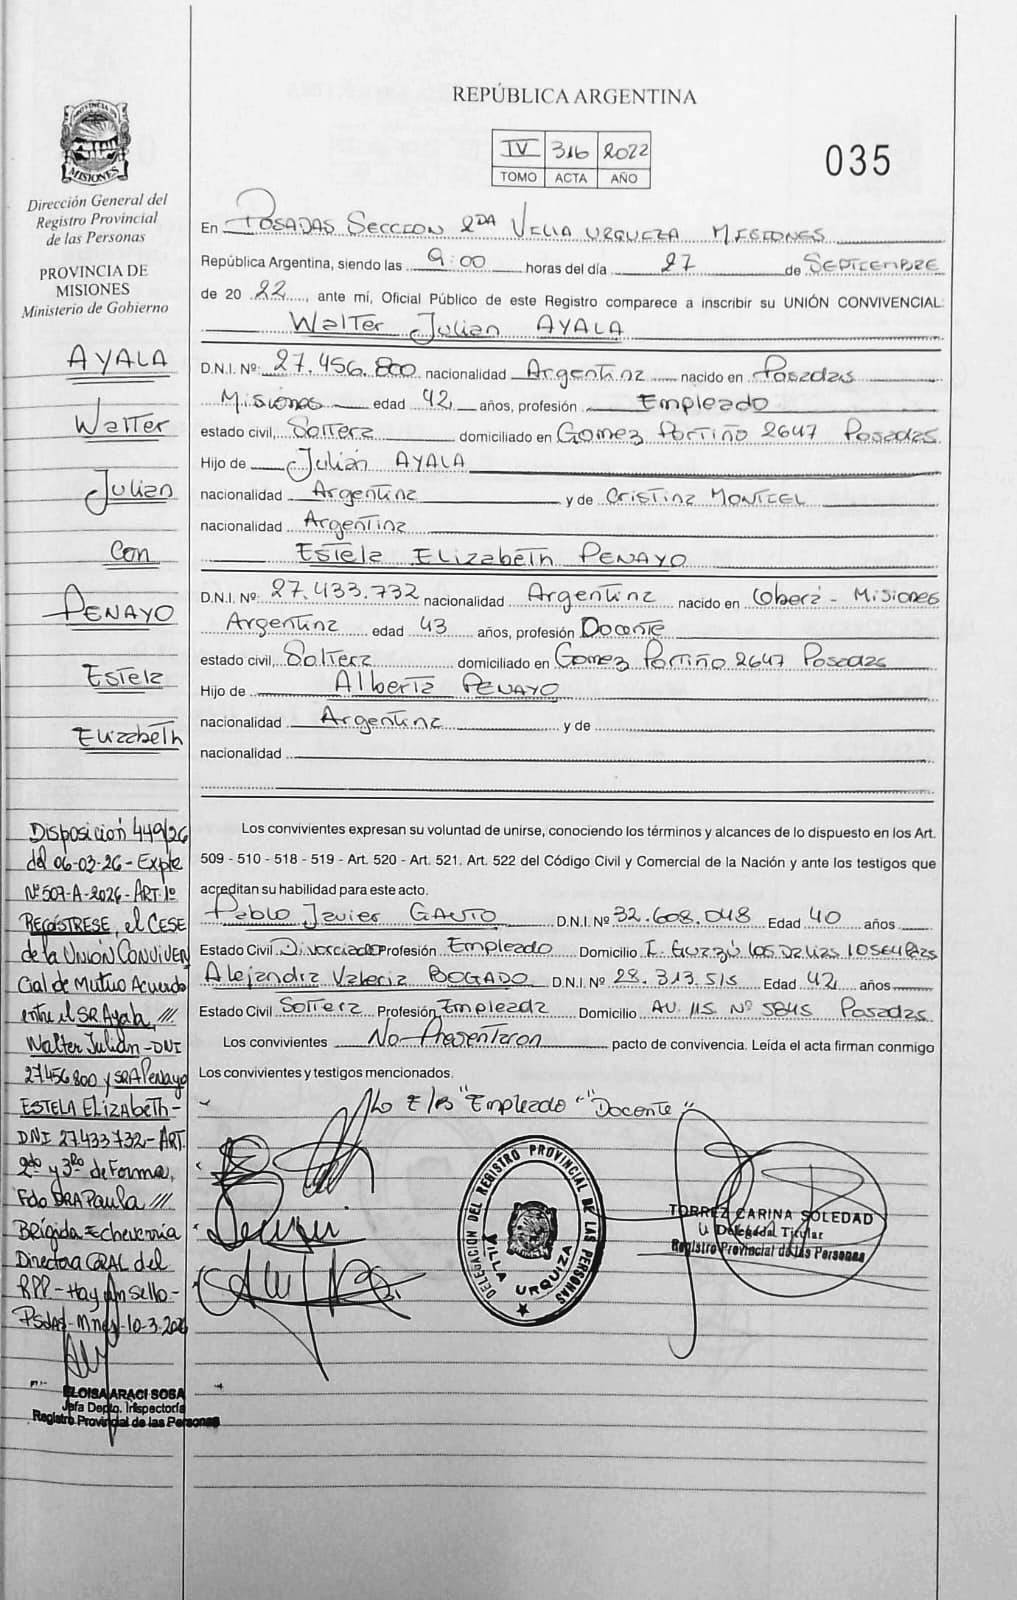 REPÚBLICA ARGENTINA
IV 316 2022
TOMO ACTA AÑO
035
PROVINCIA DE
MISIONES
Dirección General del
Registro Provincial
de las Personas
PROVINCIA DE
MISIONES
Ministerio de Gobierno
AYALA
Walter
Julian
Con
PENAYO
Estela
Elizabeth
Disposición 449/26
del 06-03-26- Expte
Nº 507-A-2026- ART. 1º
REGÍSTRESE, el CESE
de la UNIÓN CONVIVEN
Cial de Mutuo Acuerdo
entre el SR Ayala, ///
Walter Julián-DNI
27456800 y SRA Penayo
ESTELA ELIZAbeTh-
DNI 27433732- ART.
2do y 3Ro de Forma,
Fdo DRA Paula ///
Brígida Echeverria
Directora GRAL del
RPP.- Hay un sello.-
Psdas-Mnes-10-3.2026
ELOISA ARACI SOSA
Jefa Depto. Inspectoría
Registro Provincial de las Personas
En POSADAS SECCION 2DA VILLA URQUIZA MISIONES
República Argentina, siendo las 9:00 horas del día 27 de SEPTIEMBRE
de 20 22, ante mí, Oficial Público de este Registro comparece a inscribir su UNIÓN CONVIVENCIAL:
Walter Julian AYALA
D.N.I. Nº: 27.456.800 nacionalidad Argentina nacido en Posadas
Misiones edad 42 años, profesión Empleado
estado civil, Soltera domiciliado en Gomez Portiño 2647 Posadas
Hijo de Julián AYALA
nacionalidad Argentina y de Cristina MONTIEL
nacionalidad Argentina
Estela Elizabeth PENAYO
D.N.I. Nº: 27.433.732 nacionalidad Argentina nacido en Oberá - Misiones
Argentina edad 43 años, profesión Docente
estado civil, Soltera domiciliado en Gomez Portiño 2647 Posadas
Hijo de Alberta PENAYO
nacionalidad Argentina y de
nacionalidad
Los convivientes expresan su voluntad de unirse, conociendo los términos y alcances de lo dispuesto en los Art.
509 - 510 - 518 - 519 - Art. 520 - Art. 521. Art. 522 del Código Civil y Comercial de la Nación y ante los testigos que
acreditan su habilidad para este acto.
Pablo Javier GAUTO D.N.I. Nº 32.608.048 Edad 40 años
Estado Civil Divorciado Profesión Empleado Domicilio
Alejandra Valeria BOGADO D.N.I. Nº 28.313.515 Edad 42 años
Estado Civil Soltera Profesión Empleada Domicilio AV. 115 Nº 5845 Posadas
Los convivientes No Presentaron pacto de convivencia. Leída el acta firman conmigo
Los convivientes y testigos mencionados.
E/B "Empleado" "Docente"
DELEGACIÓN DEL REGISTRO PROVINCIAL DE LAS PERSONAS
VILLA URQUIZA
TORREZ CARINA SOLEDAD
Delegada Titular
Registro Provincial de las Personas